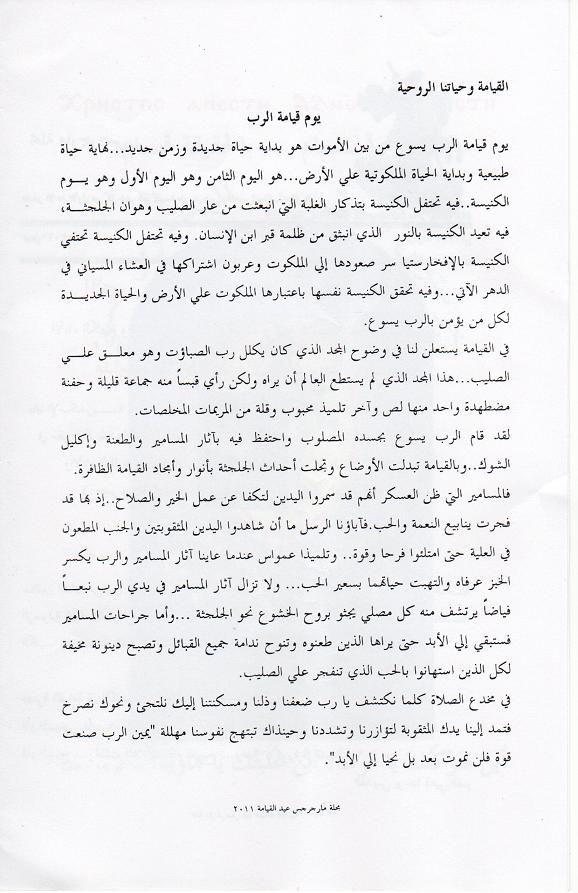 القيامة وحياتنا الروحية
يوم قيامة الرب
يوم قيامة الرب يسوع من بين الأموات هو بداية حياة جديدة وزمن جديد...نهاية حياة
طبيعية وبداية الحياة الملكوتية علي الأرض...هو اليوم الثامن وهو اليوم الأول وهو يـــوم
الكنيسة..فيه تحتفل الكنيسة بتذكار الغلبة التي انبعثت من عار الصليب وهوان الجلجثـــة،
فيه تعيد الكنيسة بالنور الذي انبثق من ظلمة قبر ابن الإنسان. وفيه تحتفل الكنيسة تحتفي
الكنيسة بالإفخارستيا سر صعودها إلي الملكوت وعربون اشتراكها في العشاء المسياني في
الدهر الآتي...وفيه تحقق الكنيسة نفسها باعتبارها الملكوت علي الأرض والحياة الجديـــدة
لكل من يؤمن بالرب يسوع.
في القيامة يستعلن لنا في وضوح المجد الذي كان يكلل رب الصباؤت وهو معلـــق علـــي
الصليب...هذا المجد الذي لم يستطع العالم أن يراه ولكن رأي قبساً منه جماعة قليلة وحفنة
مضطهدة واحد منها لص وآخر تلميذ محبوب وقلة من المريمات المخلصات.
لقد قام الرب يسوع بجسده المصلوب واحتفظ فيه بآثار المسامير والطعنة وإكليل
الشوك..وبالقيامة تبدلت الأوضاع وتجلت أحداث الجلجثة بأنوار وأمجاد القيامة الظافرة.
فالمسامير التي ظن العسكر أنهم قد سمروا اليدين لتكفا عن عمل الخير والصلاح..إذ بها قد
فجرت ينابيع النعمة والحب.فآباؤنا الرسل ما أن شاهدوا اليدين المثقوبتين والجنب المطعون
في العلية حتى امتلئوا فرحا وقوة.. وتلميذا عمواس عندما عاينا آثار المسامير والرب يكسر
الخبز عرفاه والتهبت حياتهما بسعير الحب... ولا تزال آثار المسامير في يدي الرب نبعـــاً
فياضاً يرتشف منه كل مصلي يجثو بروح الخشوع نحو الجلجثة ...وأما جراحات المسامير
فستبقي إلي الأبد حتى يراها الذين طعنوه وتنوح ندامة جميع القبائل وتصبح دينونة مخيفة
لكل الذين استهانوا بالحب الذي تنفجر علي الصليب.
في مخدع الصلاة كلما نكتشف يا رب ضعفنا وذلنا ومسكنتنا إليك نلتجئ ونحوك نصرخ
فتمد إلينا يدك المثقوبة لتؤازرنا وتشددنا وحينذاك تبتهج نفوسنا مهللة "يمين الرب صنعت
قوة فلن نموت بعد بل نحيا إلي الأبد".
مجلة مارجرجس عيد القيامة ٢٠١١